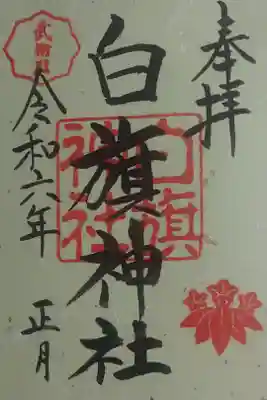 奉拝
白旗神社
白旗
神社
令和六年
正月